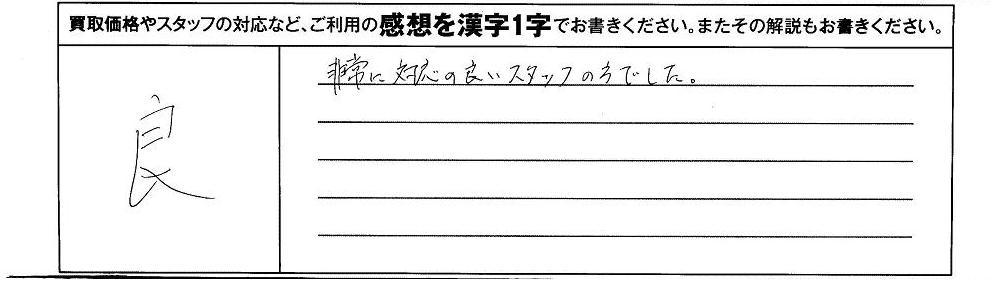 買取価格やスタッフの対応など、ご利用の感想を漢字1字でお書きください。またその解説もお書きください。
良
非常に対応の良いスタッフの方でした。